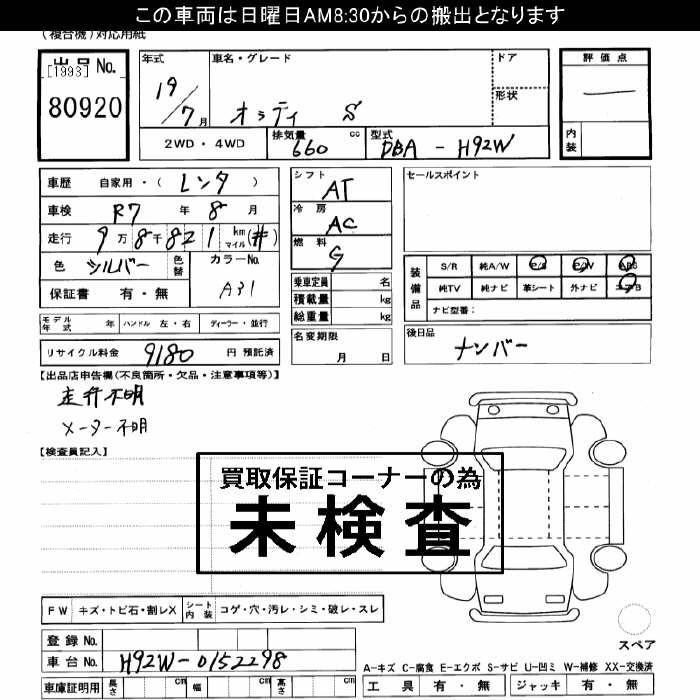 この車両は日曜日AM8:30からの搬出となります
(複合機)対応用紙
出品No.
[1993]
80920
年式
19/7月
車名・グレード
オッティ S
ドア
形状
評価点
内装
2WD・4WD
排気量 cc
660
型式
DBA - H92W
車歴 自家用・( レンタ )
車検 R7 年 8 月
走行 9万8千821 km マイル (#)
色 シルバー
色替
カラーNo.
A31
保証書 有・無
シフト
AT
冷房
AC
燃料
G
乗車定員 名
積載量 kg
総重量 kg
セールスポイント
装備品
S/R 純A/W P/S P/W ABS
純TV 純ナビ 革シート 外ナビ エアB
ナビ型番:
モデル年式 年
ハンドル 左・右
ディーラー・並行
名変期限
月 日
後日品
ナンバー
リサイクル料金 9180 円 預託済
【出品店申告欄(不良箇所・欠品・注意事項等)】
走行不明
メーター不明
【検査員記入】
買取保証コーナーの為
未検査
FW キズ・トビ石・割レX
シート内装 コゲ・穴・汚レ・シミ・破レ・スレ
登録No.
車台No. H92W-0152298
スペア
A-キズ C-腐食 E-エクボ S-サビ U-凹ミ W-補修 XX-交換済
車庫証明用 長さ cm 幅 cm 高さ cm
工具 有・無 ジャッキ 有・無